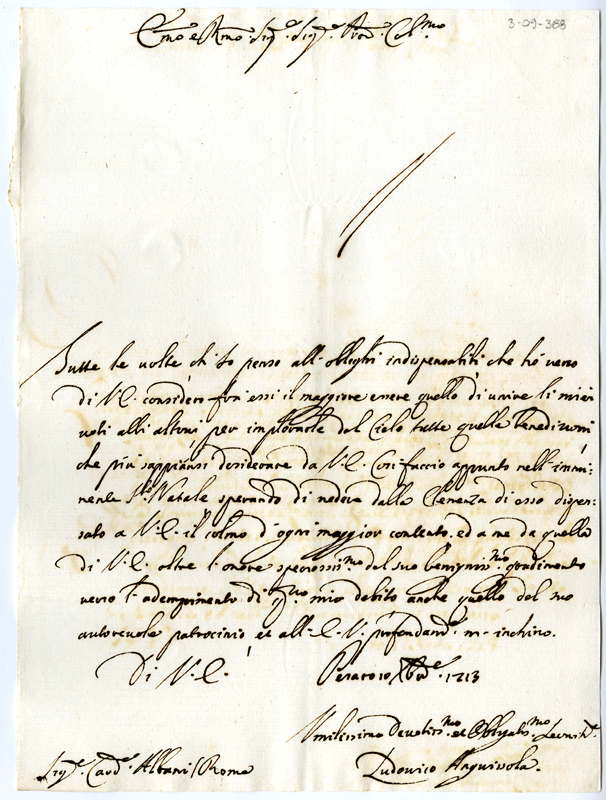 3-09-388
Em.o e R.mo Sig.e Sig.e Pad.e Col.mo
Tutte le uolte ch'Io penso all'oblighi indispensabili che hò verso
di V.E. considero frà essi il maggiore essere quello di unire li miei
uoti alli altrui per implorarle dal Cielo tutte quelle benedizioni
che più sappiansi desiderare da V.E. Così faccio appunto nell'immi-
nente S.to Natale sperando di uedere dalla Clemenza di esso dispen-
sato a V.E. il colmo d'ogni maggior contento, ed a me da quella
di V.E. oltre l'onore speciosissi.mo del suo benignis.mo gradimento
uerso l'adempimento di q.to mio debito anche quello del suo
autoreuole patrocinio, et all'E.V. profondam.e m'inchino.
Di V.E.
Pesaro 10 Xbre 1713
Umilissimo Deuotiss.mo et Obligatis.mo Seruit.e
Sig.e Card.e Albani / Roma
Ludovico Anguissola